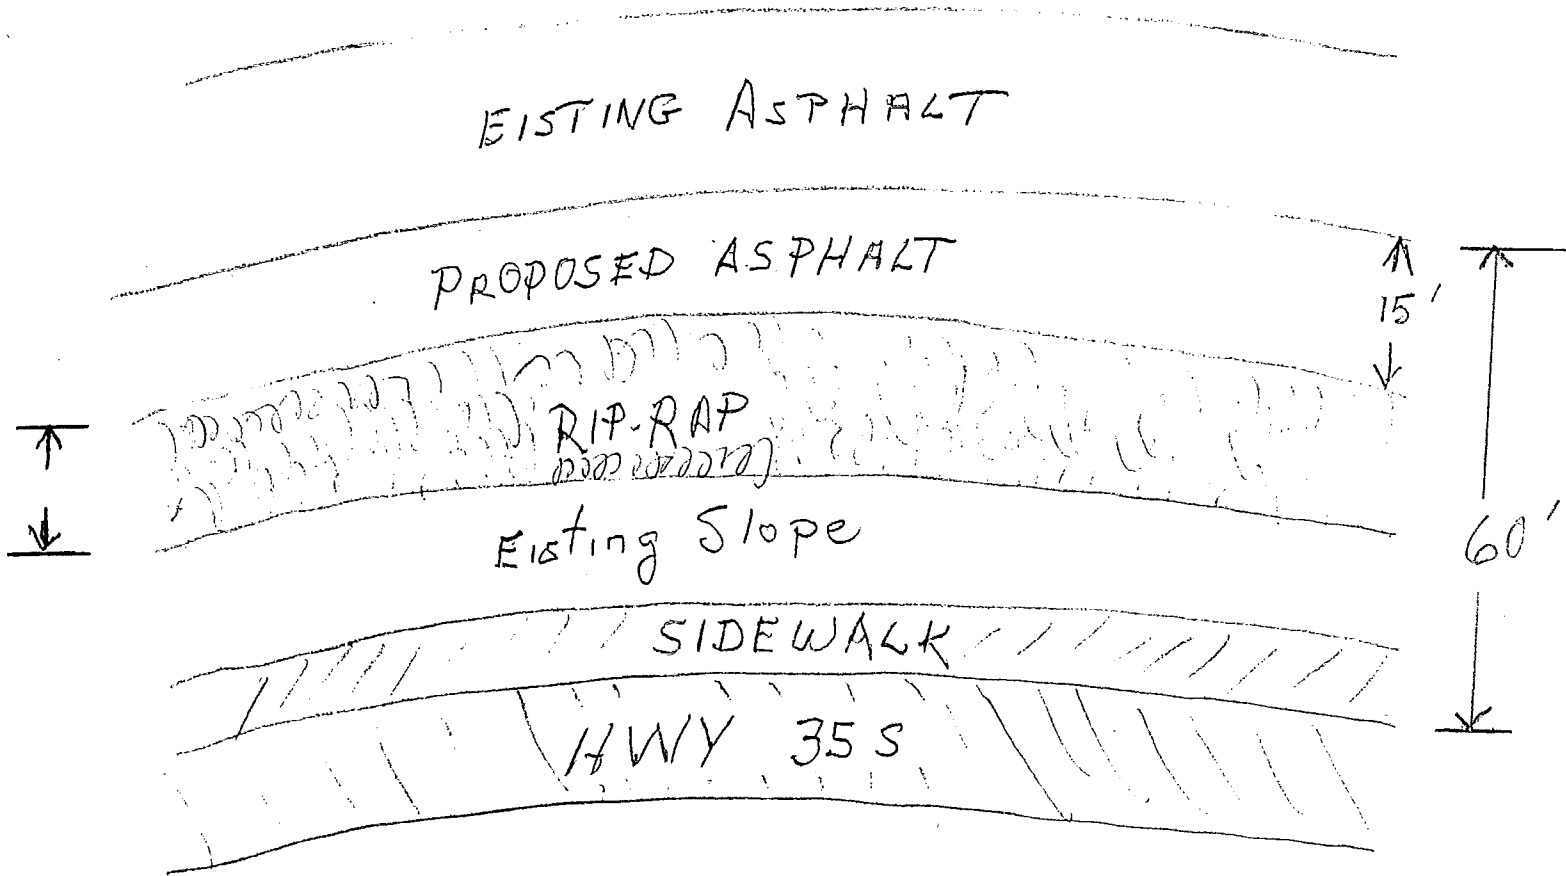 EISTING ASPHALT
PROPOSED ASPHALT
15'
RIP-RAP
Eisting Slope
60'
SIDEWALK
HWY 35 S